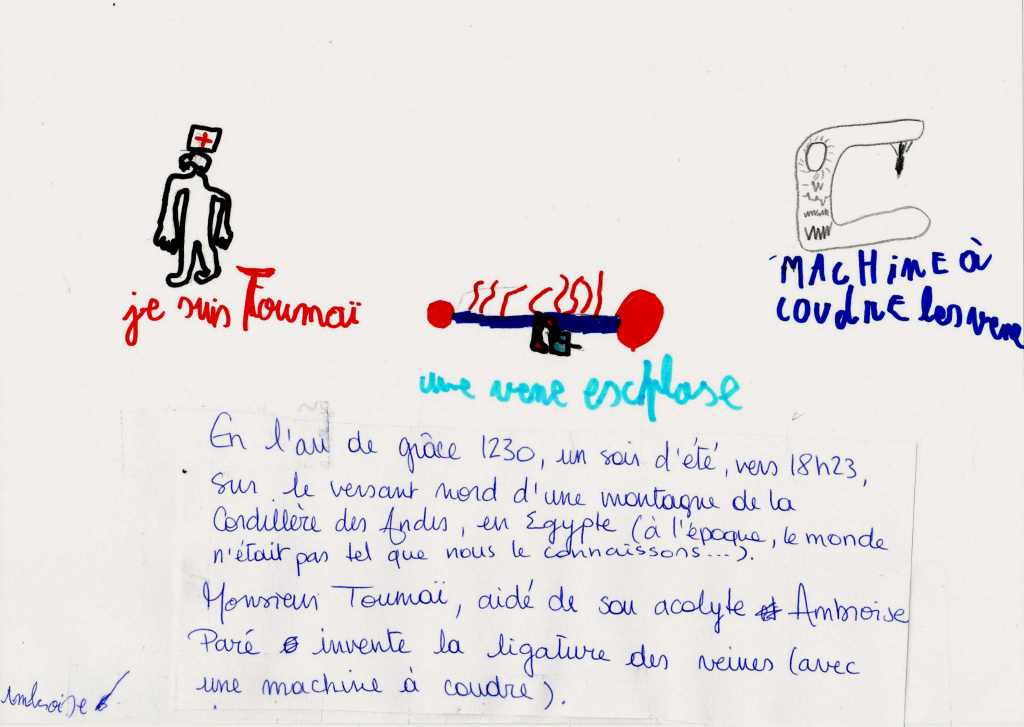 je suis Toumaï
MACHiNE à
COUdRE les vene
une vene esxplose
En l'an de grâce 1230, un soir d'été, vers 18h23,
sur le versant nord d'une montagne de la
Cordillère des Andes, en Egypte (à l'époque, le monde
n'était pas tel que nous le connaissons...).
Monsieur Toumaï, aidé de son acolyte Ambroise
Paré invente la ligature des veines (avec
une machine à coudre).
Ambroise